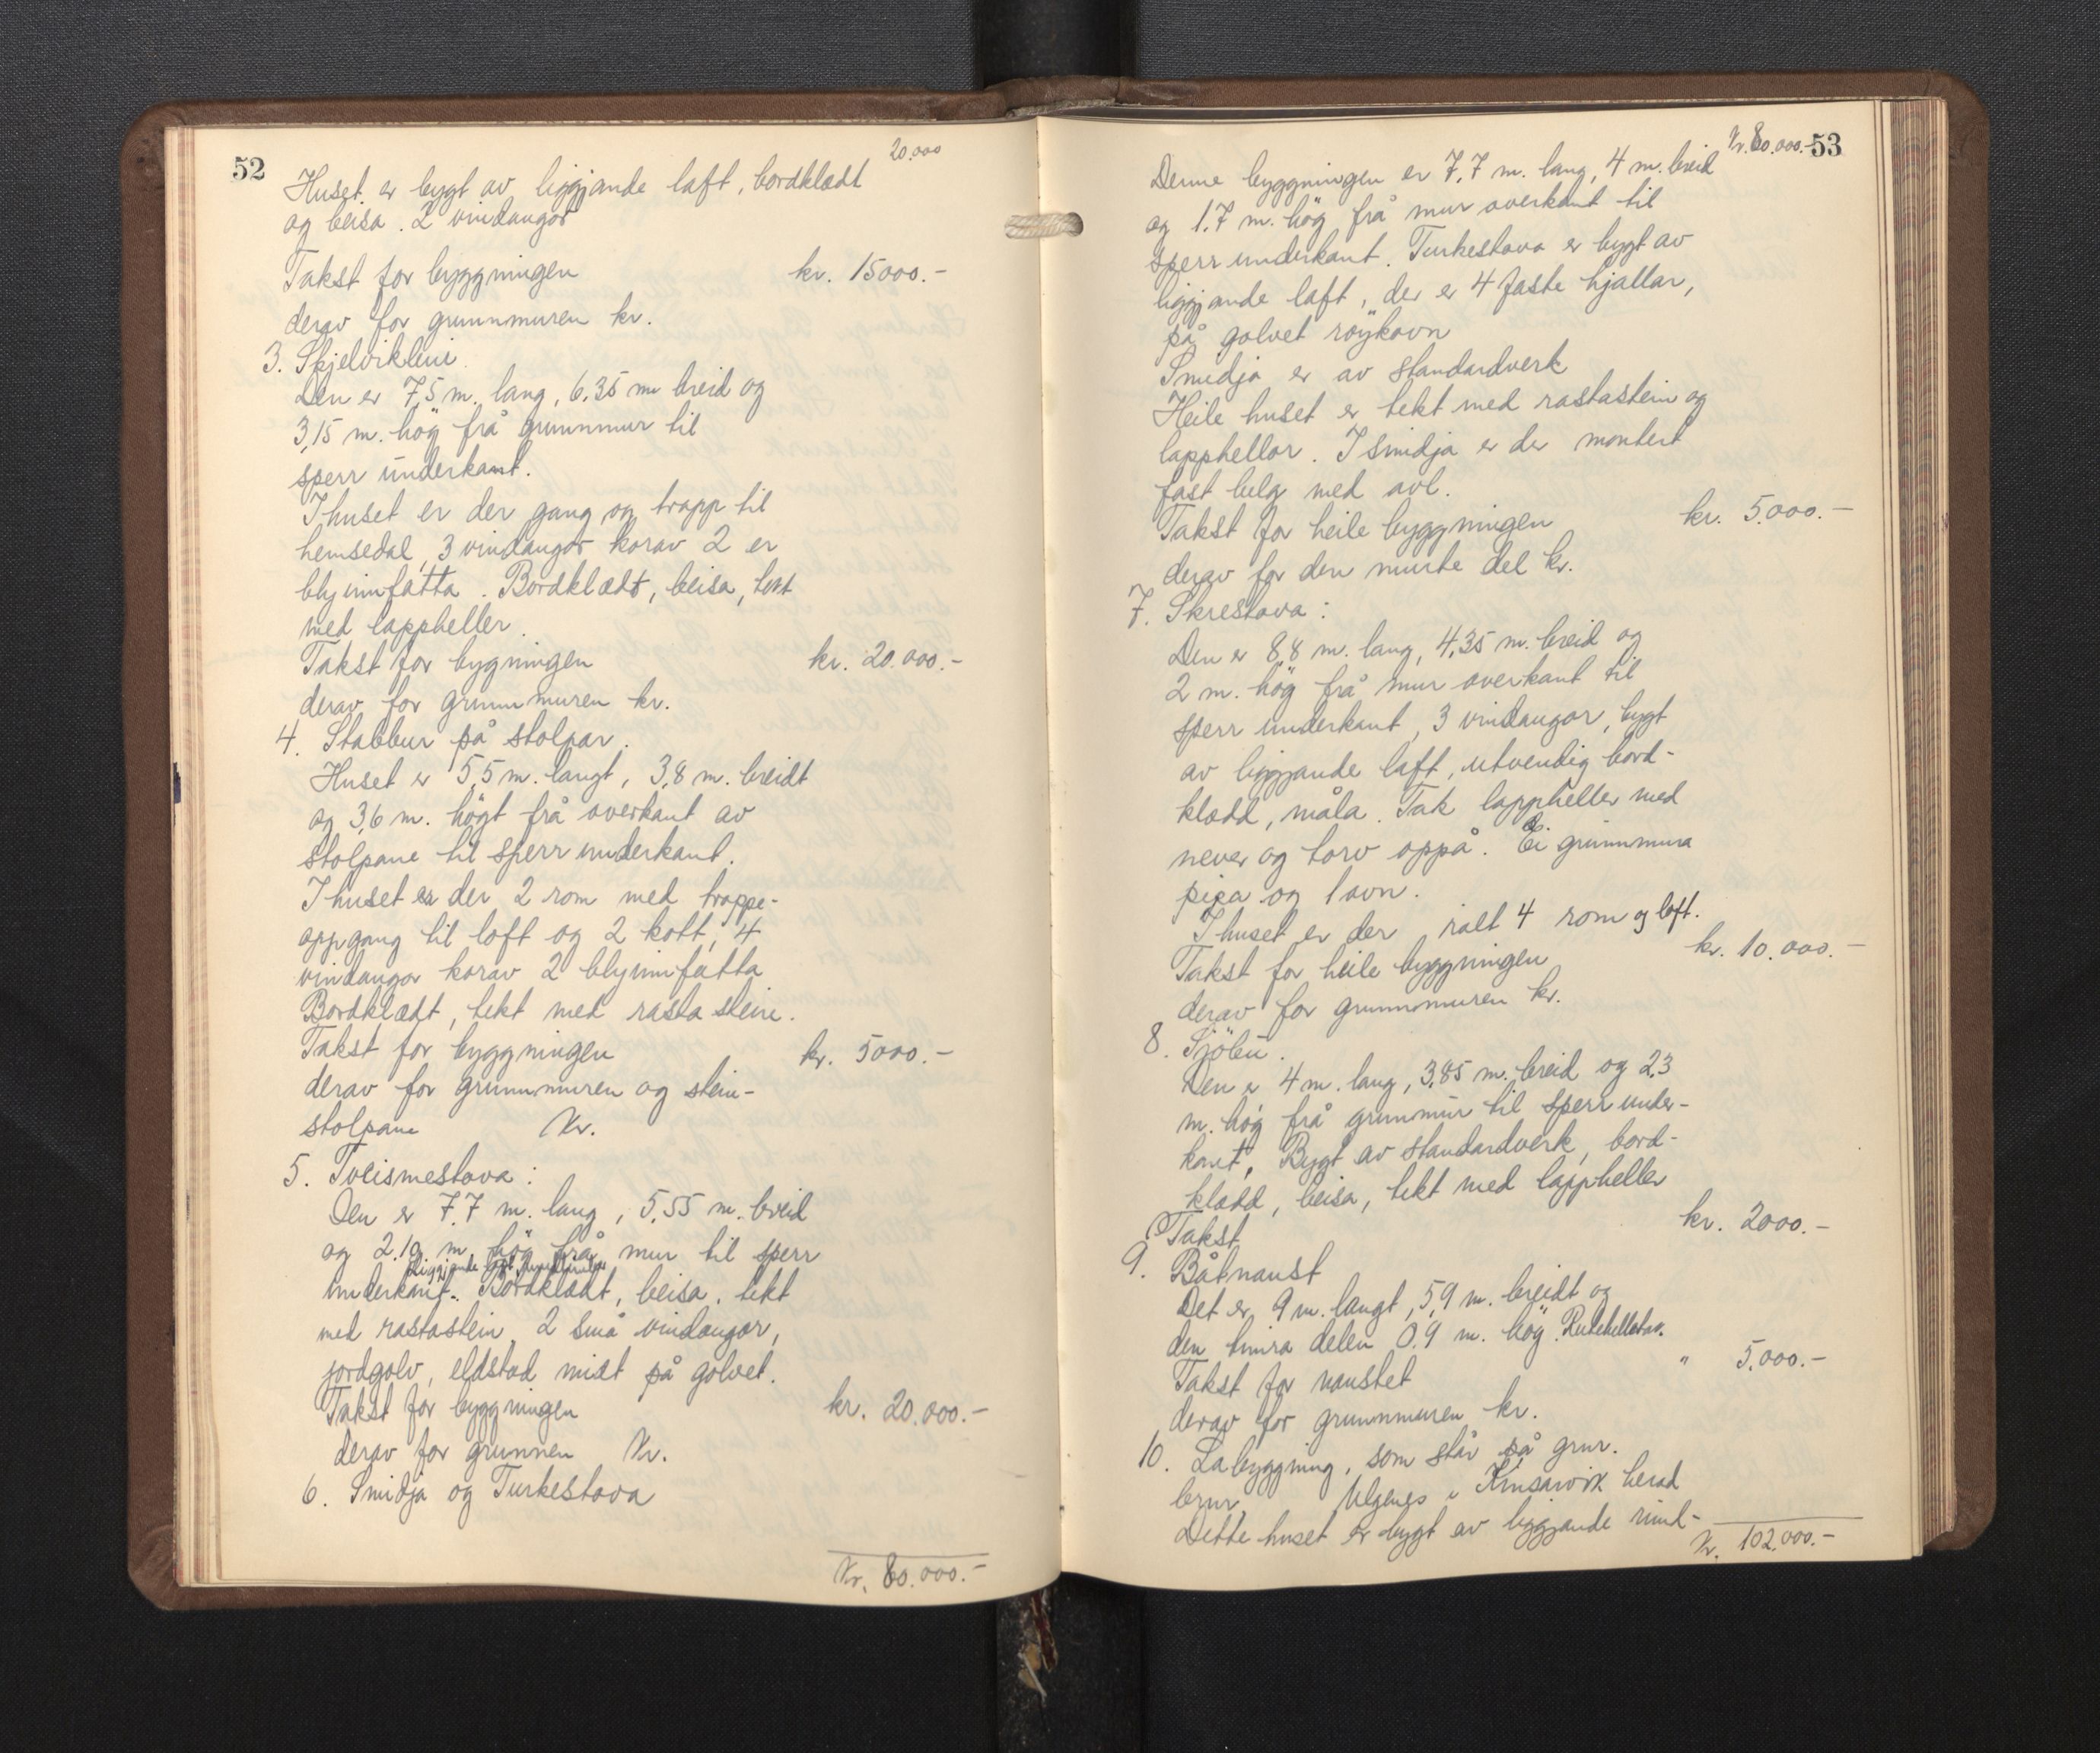 52
20.000
Huset er bygt av liggjande laft, bordklædt
og beisa. 2 vindaugor
Takst for byggningen kr. 15000.-
derav for grunnmuren kr.
3. Skjelvikbui
Den er 7,5 m. lang, 6,35 m breid og
3,15 m. hög frå grunnmur til
sperr underkant.
I huset er der gang og trapp til
hemsedal, 3 vindaugor korav 2 er
blyinnfatta. Bordklædt, beisa, tekt
med lappheller.
Takst for bygningen kr. 20.000.-
derav for grunnmuren kr.
4. Stabbur på stolpar.
Huset er 5,5 m. langt, 3,8 m. breidt
og 3,6 m. högt frå overkant av
stolpane til sperr underkant.
I huset er der 2 rom med trappe-
oppgang til loft og 2 kott, 4
vindaugor korav 2 blyinnfatta
Bordklædt, tekt med rasta stein.
Takst for byggningen kr. 5000.-
derav for grunnmuren og stein-
stolpane Kr.
5. Tveismestova:
Den er 7,7 m. lang, 5,55 m. breid
og 2.10 m. hög frå mur til sperr
liggjande laft
underkant. Bordklædt, beisa, tekt
med rastastein, 2 små vindaugor,
jordgolv, eldstad midt på golvet.
Takst for byggningen kr. 20.000.-
derav for grunnen Kr.
6. Smidja og Turkestova
Kr. 80.000.-
Kr. 80.000.- 53
Denne byggningen er 7,7 m. lang, 4 m. breid
og 1.7 m. hög frå mur overkant til
sperr underkant. Turkestova er bygt av
liggjande laft, der er 4 faste hjallar,
på golvet röykovn
Smidja er av standardverk
Heile huset er tekt med rastastein og
lapphellor. I smidja er der montert
fast belg med avl.
Takst for heile byggningen kr. 5.000.-
derav for den murte del kr.
7. Skrestova:
Den er 8,8 m. lang, 4,35 m. breid og
2 m. hög frå mur overkant til
sperr underkant, 3 vindaugor, bygt
av liggjande laft, utvendig bord-
klædd, måla. Tak lappheller med
never og torv oppå. Ei grunnmura
pipa og 1 ovn.
I huset er der ialt 4 rom og loft.
Takst for heile byggningen kr. 10.000.-
derav for grunnmuren kr.
8. Sjöbu.
Den er 4 m. lang, 3,85 m. breid og 2,3
m. hög frå grunmur til sperr under-
kant. Bygt av standardverk, bord-
klædd, beisa, tekt med lappheller
Takst kr. 2000.-
9. Båtnaust
Det er 9 m. langt, 5,9 m. breidt og
den timra delen 0.9 m. hög. Rutehelletak.
Takst for naustet " 5.000.-
derav for grunnmuren kr.
10. Labyggning, som står på gnr.
bnr. Ulgenes i Kinsarvik herad
Dette huset er bygt av liggjande rund-
Kr. 102.000.-